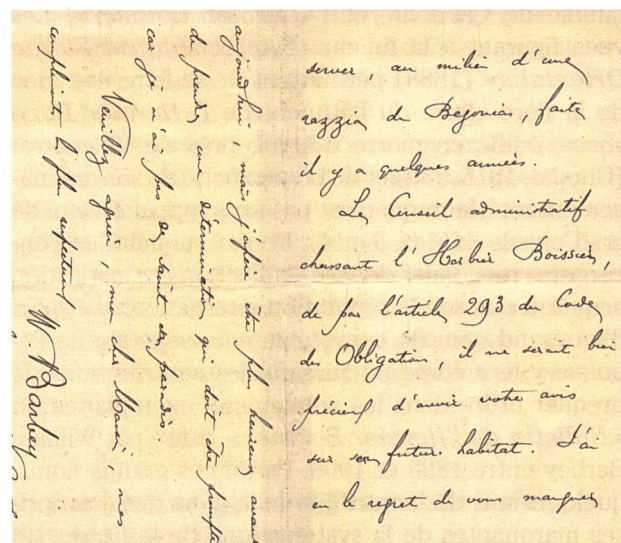 server, au milieu d'une
razzia de Begonias, faite
il y a quelques années.
Le Conseil administratif
chassant l'Herbier Boissier,
de par l'article 293 du Code
des Obligations, il me serait bien
précieux d'avoir votre avis
sur son futur habitat. J'ai
eu le regret de vous manquer
aujourd'hui mais j'espère être plus heureux avant
de prendre une détermination qui doit être
car je n'ai pas de
Veuillez agréer, mon cher mes
compliments les plus respectueux W Barbey